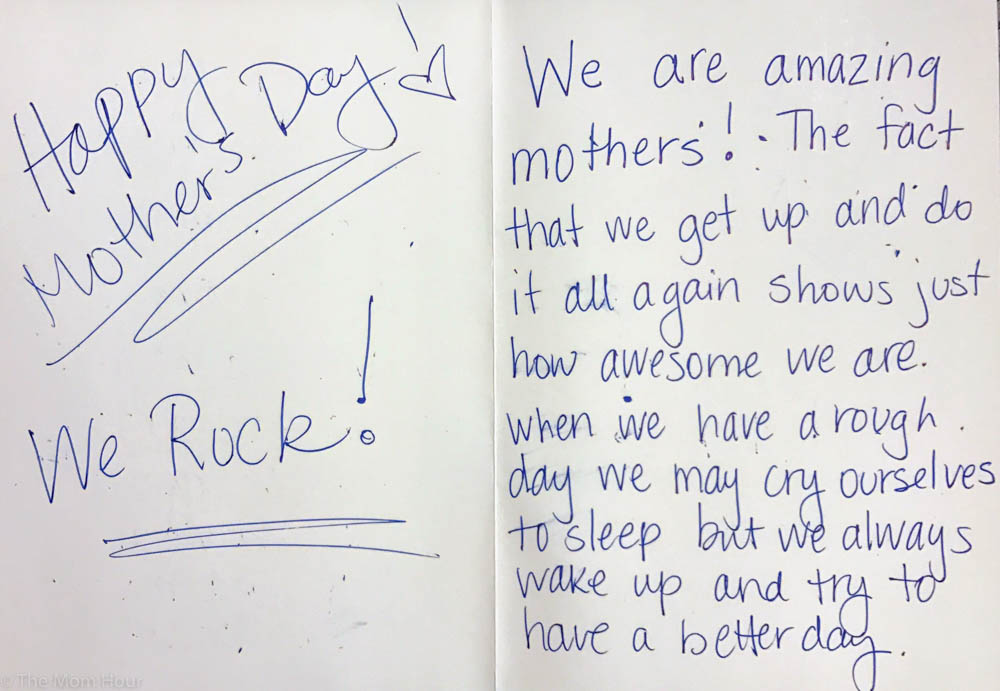 Happy
Mother's Day!
We Rock!
We are amazing
mothers! The fact
that we get up and do
it all again shows just
how awesome we are.
when we have a rough
day we may cry ourselves
to sleep but we always
wake up and try to
have a better day.
© The Mom Hour